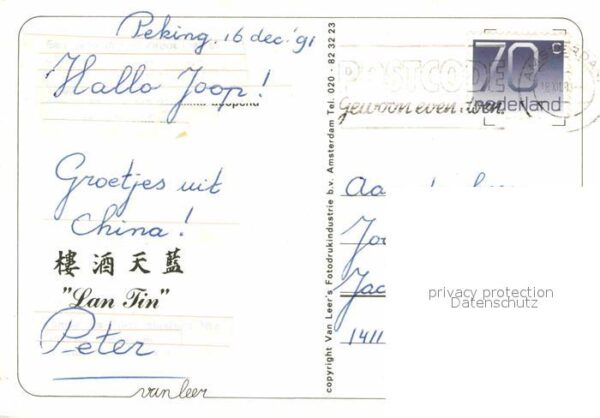 Peking, 16 dec. '91
Hallo Joop!
Groetjes uit
China!
樓酒天藍
"Lan Tin"
Peter
van leer
copyright Van Leer's Fotodrukindustrie b.v. Amsterdam Tel. 020 - 82 32 23
POSTCODE
Gewoon even doen!
70 c
nederland
Jac
1411
privacy protection
Datenschutz